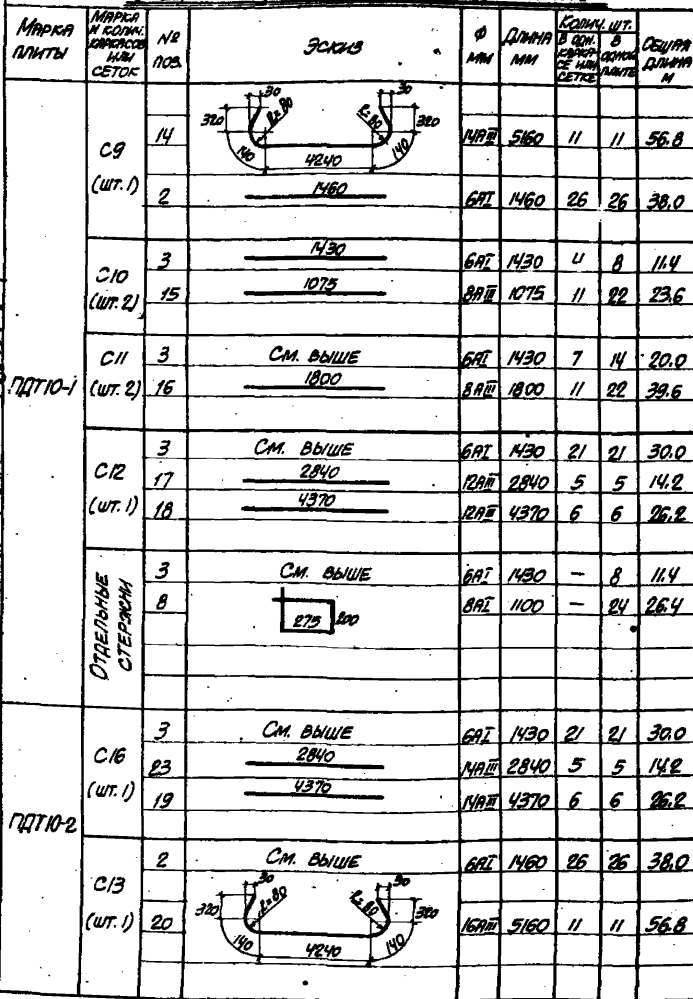 МАРКА ПЛИТЫ
МАРКА И КОЛИЧ. КАРКАСОВ ИЛИ СЕТОК
№ ПОЗ.
ЭСКИЗ
Ф ММ
ДЛИНА ММ
КОЛИЧ. ШТ.
В ОДН. КАРКАСЕ ИЛИ СЕТКЕ
В ОДНОЙ ПЛИТЕ
ОБЩАЯ ДЛИНА М
ПДТ10-1
С9 (ШТ. 1)
14 320 30 R=80 140 4240 30 R=80 320 140 14АIII 5160 11 11 56.8
2 1460 6АI 1460 26 26 38.0
С10 (ШТ. 2)
3 1430 6АI 1430 4 8 11.4
15 1075 8АIII 1075 11 22 23.6
С11 (ШТ. 2)
3 СМ. ВЫШЕ 6АI 1430 7 14 20.0
16 1800 8АIII 1800 11 22 39.6
С12 (ШТ. 1)
3 СМ. ВЫШЕ 6АI 1430 21 21 30.0
17 2840 12АIII 2840 5 5 14.2
18 4370 12АIII 4370 6 6 26.2
ОТДЕЛЬНЫЕ СТЕРЖНИ
3 СМ. ВЫШЕ 6АI 1430 — 8 11.4
8 275 200 8АI 1100 — 24 26.4
ПДТ10-2
С16 (ШТ. 1)
3 СМ. ВЫШЕ 6АI 1430 21 21 30.0
23 2840 14АIII 2840 5 5 14.2
19 4370 14АIII 4370 6 6 26.2
С13 (ШТ. 1)
2 СМ. ВЫШЕ 6АI 1460 26 26 38.0
20 320 30 R=80 140 4240 30 R=80 320 140 16АIII 5160 11 11 56.8